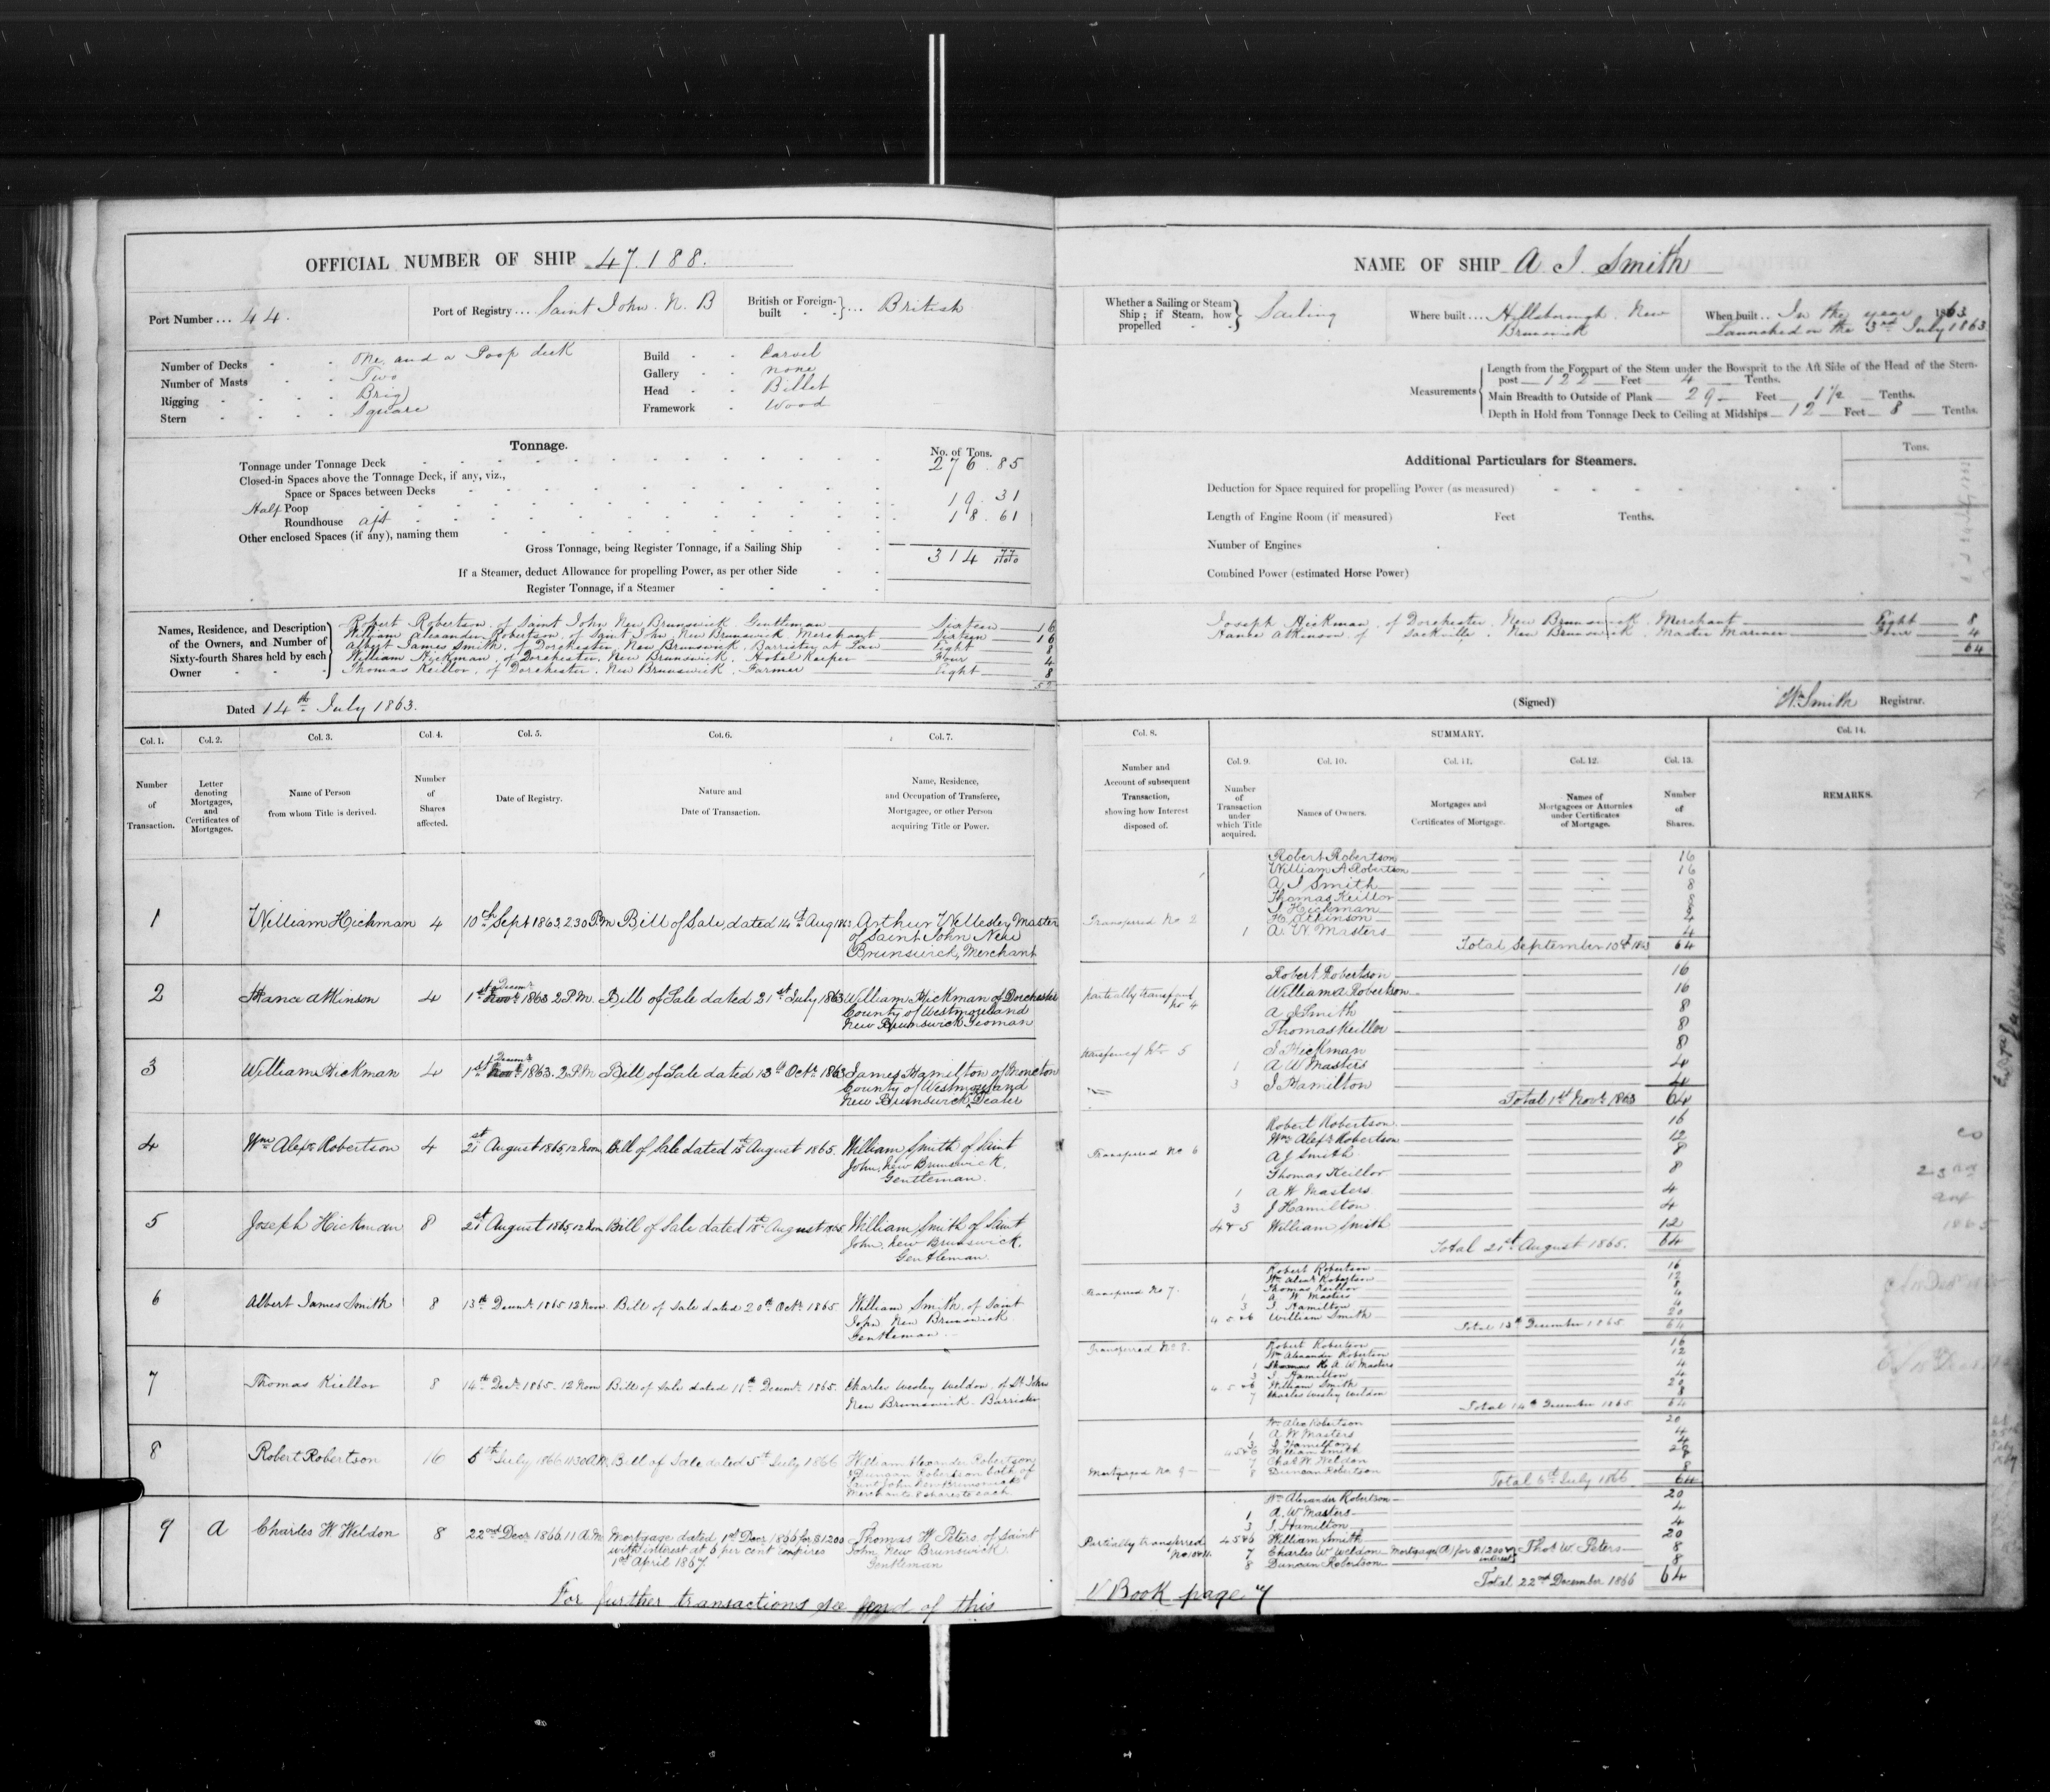 OFFICIAL NUMBER OF SHIP 47.188.
Port Number ... 44.
Port of Registry ... Saint John. N. B
British or Foreign-built ... British
Number of Decks One and a Poop deck
Number of Masts Two
Rigging Brig
Stern Square
Build Carvel
Gallery none
Head Billet
Framework Wood
Tonnage.
No. of Tons.
Tonnage under Tonnage Deck 276.85
Closed-in Spaces above the Tonnage Deck, if any, viz.,
Space or Spaces between Decks
Half Poop 19.31
Roundhouse aft 18.61
Other enclosed Spaces (if any), naming them
Gross Tonnage, being Register Tonnage, if a Sailing Ship 314 77/100
If a Steamer, deduct Allowance for propelling Power, as per other Side
Register Tonnage, if a Steamer
Names, Residence, and Description of the Owners, and Number of Sixty-fourth Shares held by each Owner
Robert Robertson, of Saint John New Brunswick. Gentleman Sixteen 16
William Alexander Robertson, of Saint John, New Brunswick. Merchant Sixteen 16
Albert James Smith, of Dorchester, New Brunswick. Barrister at Law Eight 8
William Hickman, of Dorchester, New Brunswick. Hotel Keeper Four 4
Thomas Keillor, of Dorchester. New Brunswick. Farmer Eight 8
52
Dated 14th July 1863.
Col. 1. Col. 2. Col. 3. Col. 4. Col. 5. Col. 6. Col. 7.
Number of Transaction.
Letter denoting Mortgages, and Certificates of Mortgages.
Name of Person from whom Title is derived.
Number of Shares affected.
Date of Registry.
Nature and Date of Transaction.
Name, Residence, and Occupation of Transferee, Mortgagee, or other Person acquiring Title or Power.
1 William Hickman 4 10th Sept 1863, 2.30 P.M Bill of Sale, dated 14th Aug 1863 Arthur Wellesley Master
of Saint John New
Brunswick, Merchant
2 Hance Atkinson 4 1st Novr Decemr 1863 2 P.M. Bill of Sale dated 21st July 1863 William Hickman of Dorchester
County of Westmoreland
New Brunswick Yeoman
3 William Hickman 4 1st Novr Decemr 1863. 2 P.M Bill of Sale dated 13th Octr 1863 James Hamilton of Moncton
County of Westmoreland
New Brunswick Dealer
4 Wm Alexr Robertson 4 21st August 1865, 12 Noon Bill of Sale dated 15th August 1865. William Smith of Saint
John, New Brunswick.
Gentleman.
5 Joseph Hickman 8 21st August 1865, 12 Noon Bill of Sale dated 18th August 1865 William Smith of Saint
John, New Brunswick.
Gentleman
6 Albert James Smith 8 13th Decemr 1865 12 Noon. Bill of Sale dated 20th Octr 1865. William Smith, of Saint
John New Brunswick
Gentleman
7 Thomas Kiellor 8 14th Decr 1865. 12 Noon Bill of Sale dated 11th Decemr 1865. Charles Wesley Weldon, of St John
New Brunswick. Barrister
8 Robert Robertson 16 6th July 1866 11.30 A.M. Bill of Sale dated 5th July 1866 William Alexander Robertson
& Duncan Robertson both of
Saint John New Brunswick
Merchants 8 shares to each
9 A Charles W Weldon 8 22nd Decr 1866. 11 A.M. Mortgage dated 1st Decr 1866 for $1200 Thomas W Peters of Saint
with interest at 6 per cent Expires John New Brunswick
1st April 1867 Gentleman
For further transactions see end of this
NAME OF SHIP A J Smith
Whether a Sailing or Steam Ship; if Steam, how propelled Sailing
Where built .... Hillsborough. New
Brunswick
When built .. In the year 1863
Launched on the 3rd July 1863
Measurements
Length from the Forepart of the Stem under the Bowsprit to the Aft Side of the Head of the Stern-
post 122 Feet 4 Tenths.
Main Breadth to Outside of Plank 29 Feet 1 1/2 Tenths.
Depth in Hold from Tonnage Deck to Ceiling at Midships 12 Feet 8 Tenths.
Additional Particulars for Steamers.
Tons.
Deduction for Space required for propelling Power (as measured)
Length of Engine Room (if measured) Feet Tenths.
Number of Engines
Combined Power (estimated Horse Power)
Joseph Hickman, of Dorchester, New Brunswick. Merchant Eight 8
Hance Atkinson of Sackville. New Brunswick Master Mariner Four 4
64
(Signed) Wm Smith Registrar.
Col. 8. SUMMARY. Col. 14.
Col. 9. Col. 10. Col. 11. Col. 12. Col. 13.
Number and Account of subsequent Transaction, showing how Interest disposed of.
Number of Transaction under which Title acquired.
Names of Owners.
Mortgages and Certificates of Mortgage.
Names of Mortgagees or Attornies under Certificates of Mortgage.
Number of Shares.
REMARKS.
Robert Robertson 16
William A Robertson 16
A J Smith 8
Thomas Keillor 8
J Hickman 8
H Atkinson 4
Transferred No 2
1 A. W. Masters 4
Total September 10th 1863 64
Robert Robertson 16
partially transferred No 4 William A Robertson 16
A J Smith 8
Thomas Keillor 8
transferred No 5 J Hickman 8
1 A W Masters 4
3 J Hamilton 4
Total 1st Novr 1863 64
Robert Robertson 16
Wm Alexr Robertson 12
Transferred No 6 A J Smith 8
Thomas Keillor 8
1 A W Masters 4
3 J Hamilton 4
4 & 5 William Smith 12
Total 21st August 1865. 64
Robert Robertson 16
Wm Alexr Robertson 12
Transferred No 7. Thomas Keillor 8
1 A. W. Masters 4
3 J Hamilton 4
4 5 & 6 William Smith 20
Total 13th December 1865. 64
Transferred No 8. Robert Robertson 16
Wm Alexander Robertson 12
1 A W Masters 4
3 J. Hamilton 4
4 5 & 6 William Smith 20
7 Charles Wesley Weldon 8
Total 14th December 1865 64
Wm Alex Robertson 20
1 A. W. Masters 4
3 J Hamilton 4
4 5 & 6 William Smith 20
7 Chas W. Weldon 8
Mortgaged No. 9 8 Duncan Robertson 8
Total 6th July 1866 64
Wm Alexander Robertson 20
1 A. W Masters 4
3 J. Hamilton 4
Partially transferred No 10 & 11. 4 5 & 6 William Smith 20
7 Charles W Weldon Mortgage (A) for $1200 & interest Thos W. Peters 8
8 Duncan Robertson 8
Total 22nd December 1866 64
V Book page 7